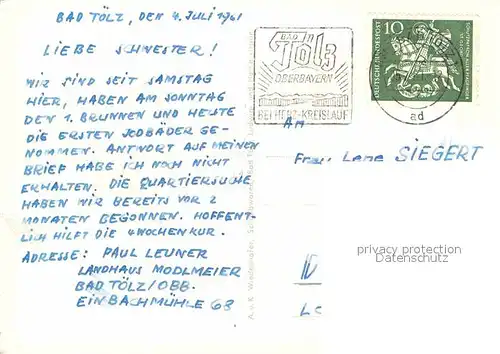 BAD TÖLZ, DEN 4. JULI 1961
LIEBE SCHWESTER!
WIR SIND SEIT SAMSTAG
HIER, HABEN AM SONNTAG
DEN 1. BRUNNEN UND HEUTE
DIE ERSTEN JODBÄDER GE-
NOMMEN. ANTWORT AUF MEINEN
BRIEF HABE ICH NOCH NICHT
ERHALTEN. DIE QUARTIERSUCHE
HABEN WIR BEREITS VOR 2
MONATEN BEGONNEN. HOFFENT-
LICH HILFT DIE 4WOCHENKUR.
ADRESSE: PAUL LEUNER
LANDHAUS MODLMEIER
BAD TÖLZ/OBB.
EINBACHMÜHLE 68
BAD
Tölz
OBERBAYERN
BEI HERZ-KREISLAUF
10
DEUTSCHE BUNDESPOST
ad
AM
Frau Lame SIEGERT
privacy protection
www.ansichtskartenversand.com